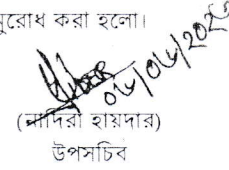 নুরোধ করা হলো।
০৬/০৬/২০২৩
(নাদিরা হায়দার)
উপসচিব